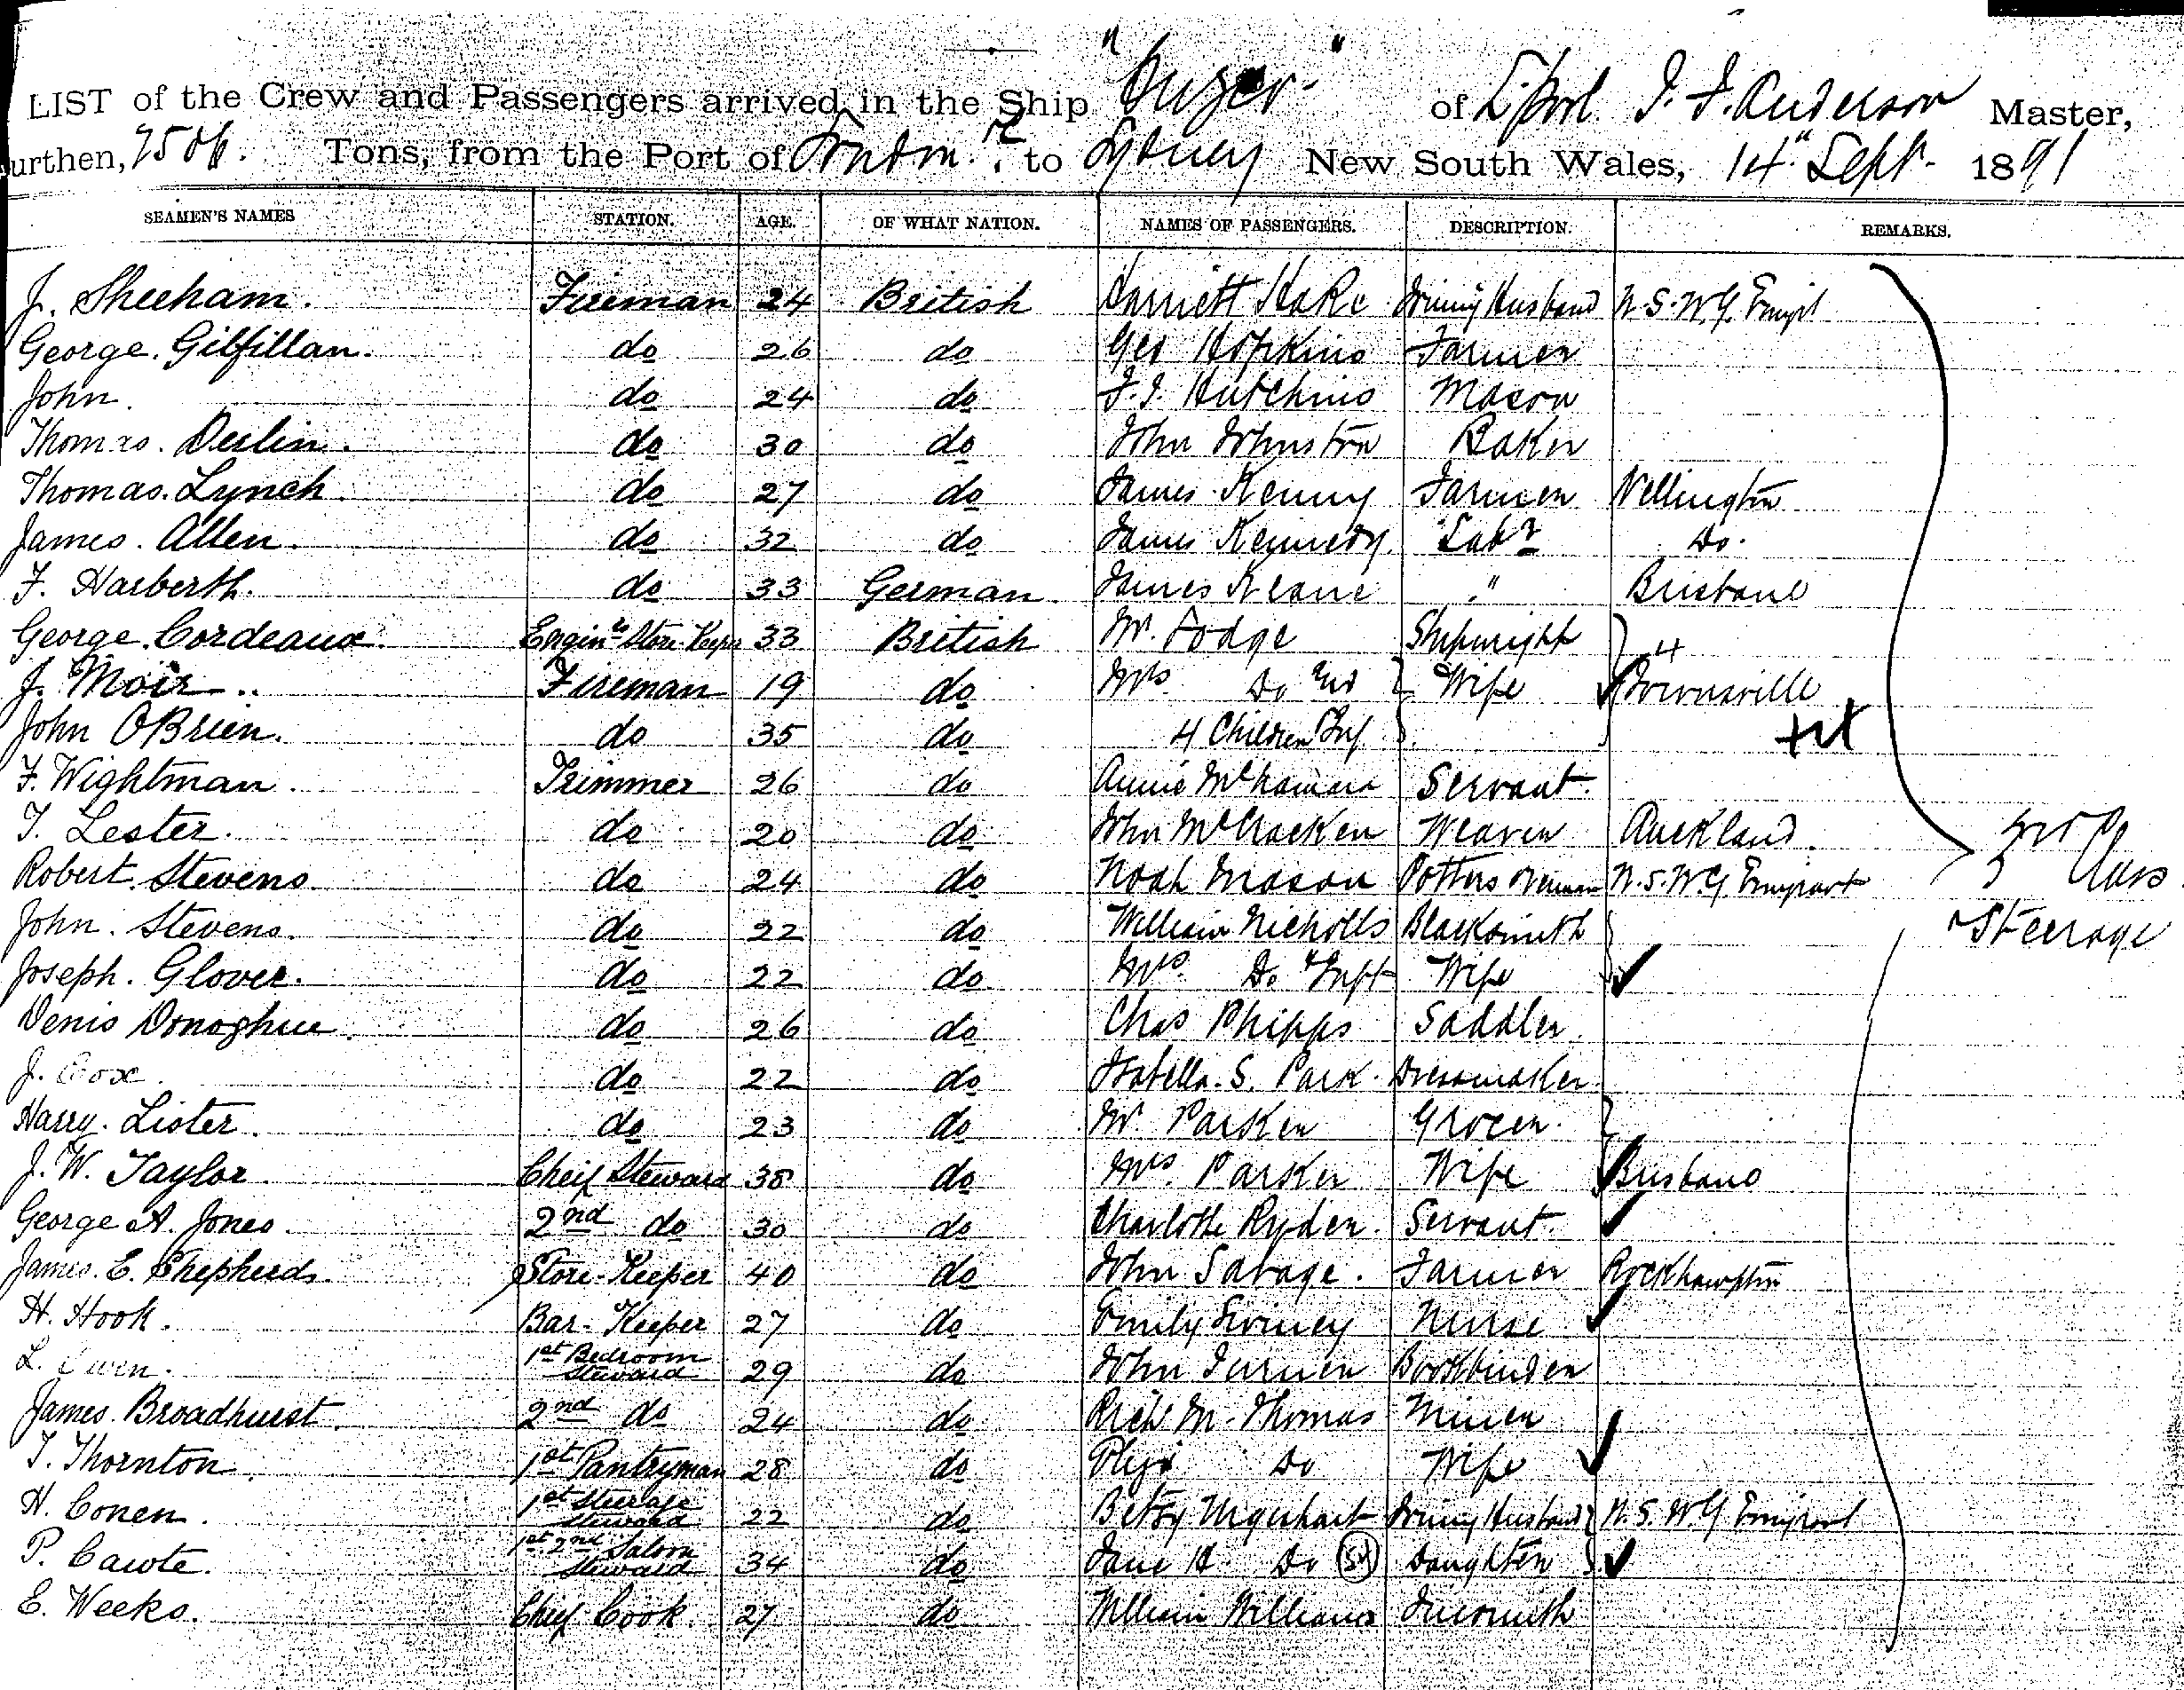 LIST of the Crew and Passengers arrived in the Ship " " of L'pool J. F. Anderson Master,
urthen, 2506. Tons, from the Port of London to Sydney New South Wales, 14" Sept. 1891
SEAMEN'S NAMES STATION. AGE. OF WHAT NATION. NAMES OF PASSENGERS. DESCRIPTION. REMARKS.
J. Sheeham. Fireman 24 British Harriett Hake Joining Husband N.S.W.G. Emigt
George. Gilfillan. do 26 do Geo Hopkins Farmer
John. do 24 do F. J. Hutchins Mason
Thomas. Deslin. do 30 do John Johnston Baker
Thomas. Lynch. do 27 do James Kenny Farmer Wellington
James. Allen. do 32 do James Kennedy Labr Do.
F. Harberth. do 33 German James Keane " Brisbane
George. Cordeaux. Enginrs Store Keeper 33 British Mr. Lodge Shipwright
J. Moir. Fireman 19 do Mrs. Do and Wife 4 Townsville
John O'Brien. do 35 do 4 Children & Inf
F. Wightman. Trimmer 26 do Annie McNamara Servant.
T. Lester. do 20 do John McCracken Weaver Auckland.
Robert. Stevens do 24 do Noah Mason Potters N.S.W.G. Emigrant
3rd Class
John. Stevens. do 22 do William Nicholls Blacksmith
Steerage
Joseph. Glover. do 22 do Mrs. Do & Inft Wife ✓
Denis Donoghue. do 26 do Chas Phipps Saddler
J. Cox. do 22 do Isabella. S. Park. Dressmaker.
Harry. Lister. do 23 do Mr Parker Grocer.
J. W. Taylor. Cheif Steward 38 do Mrs. Parker Wife ✓ Brisbane
George A. Jones. 2nd do 30 do Charlotte Ryder. Servant. ✓
James. E. Shepherds. Store-Keeper 40 do John Savage. Farmer Rockhampton
H. Hook. Bar-Keeper 27 do Emily Nurse ✓
L. Owen. 1st Bedroom Steward 29 do John Turner Bookbinder
James. Broadhurst. 2nd do 24 do Richd M. Thomas Miner
T. Thornton. 1st Pantryman 28 do Eliza Do Wife ✓
H. Conen. 1st Steerage Steward 22 do Betsy Urquhart Joining Husband N.S.W.G Emigrant
P. Cawte. 1st 2nd Saloon Steward 34 do Jane H. Do Daughter ✓
E. Weeks. Chief Cook. 27 do William Williams Tinsmith